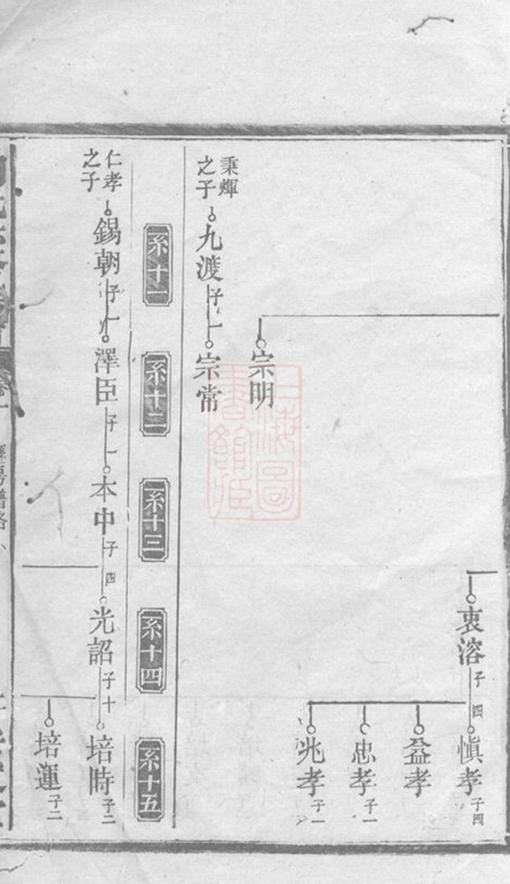 衷溶子四
愼孝子四
益孝
忠孝子一
兆孝子一
宗明
秉煇之子
九渡子一
宗常
系十一
系十二
系十三
系十四
系十五
仁孝之子
錫朝子一
澤臣子一
本中子四
光詔子十
培時子二
培運子二
上海圖書館藏